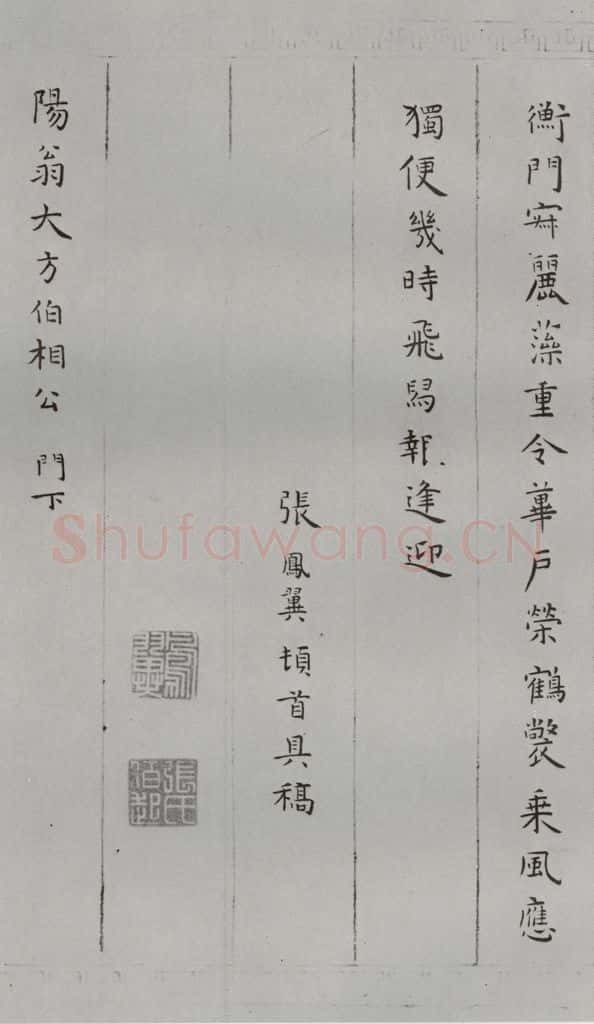 衡門麗藻重令蓽戶榮鶴氅乘風應
獨便幾時飛舄報逢迎
張鳳翼頓首具稿
鳳翼
張氏伯起
陽翁大方伯相公 門下
Shufawang.CN